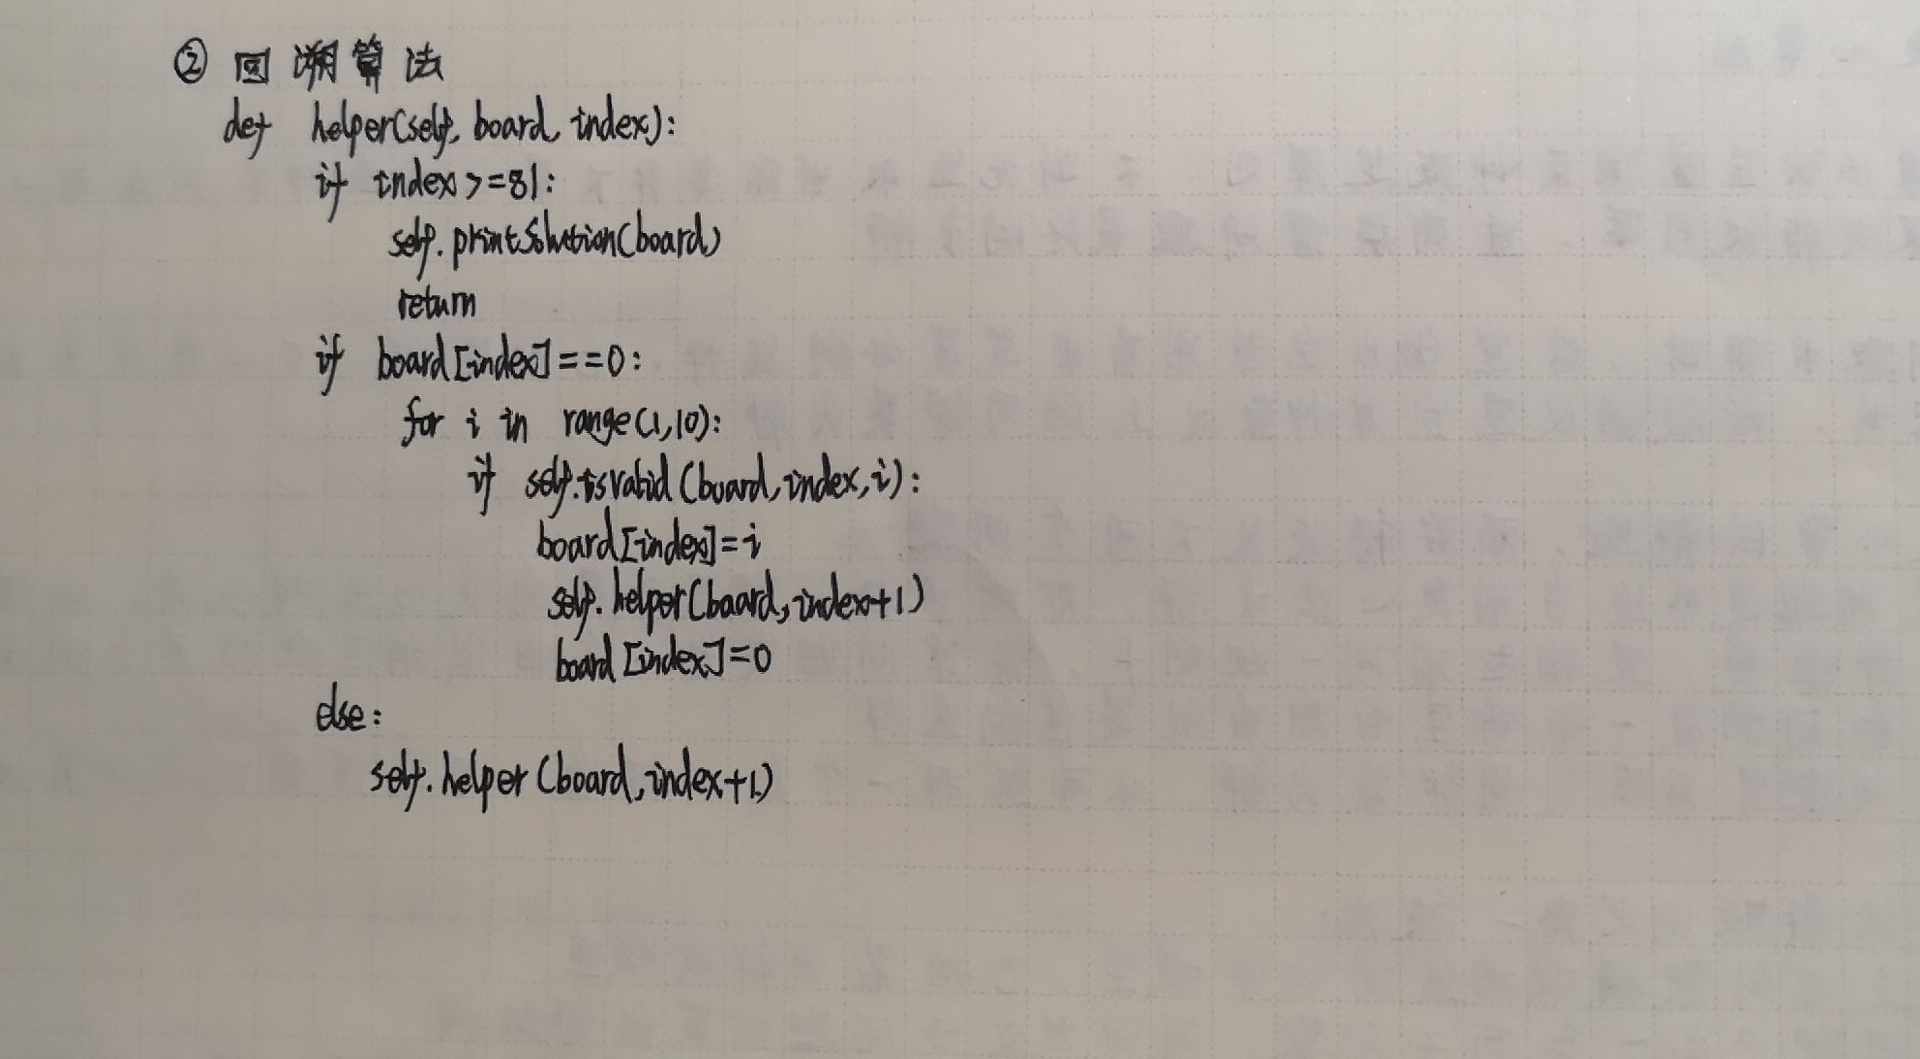 ② 回溯算法
def helper(self, board, index):
if index>=81:
self.printSolution(board)
return
if board[index]==0:
for i in range(1,10):
if self.isValid(board,index,i):
board[index]=i
self.helper(board,index+1)
board[index]=0
else:
self.helper(board,index+1)